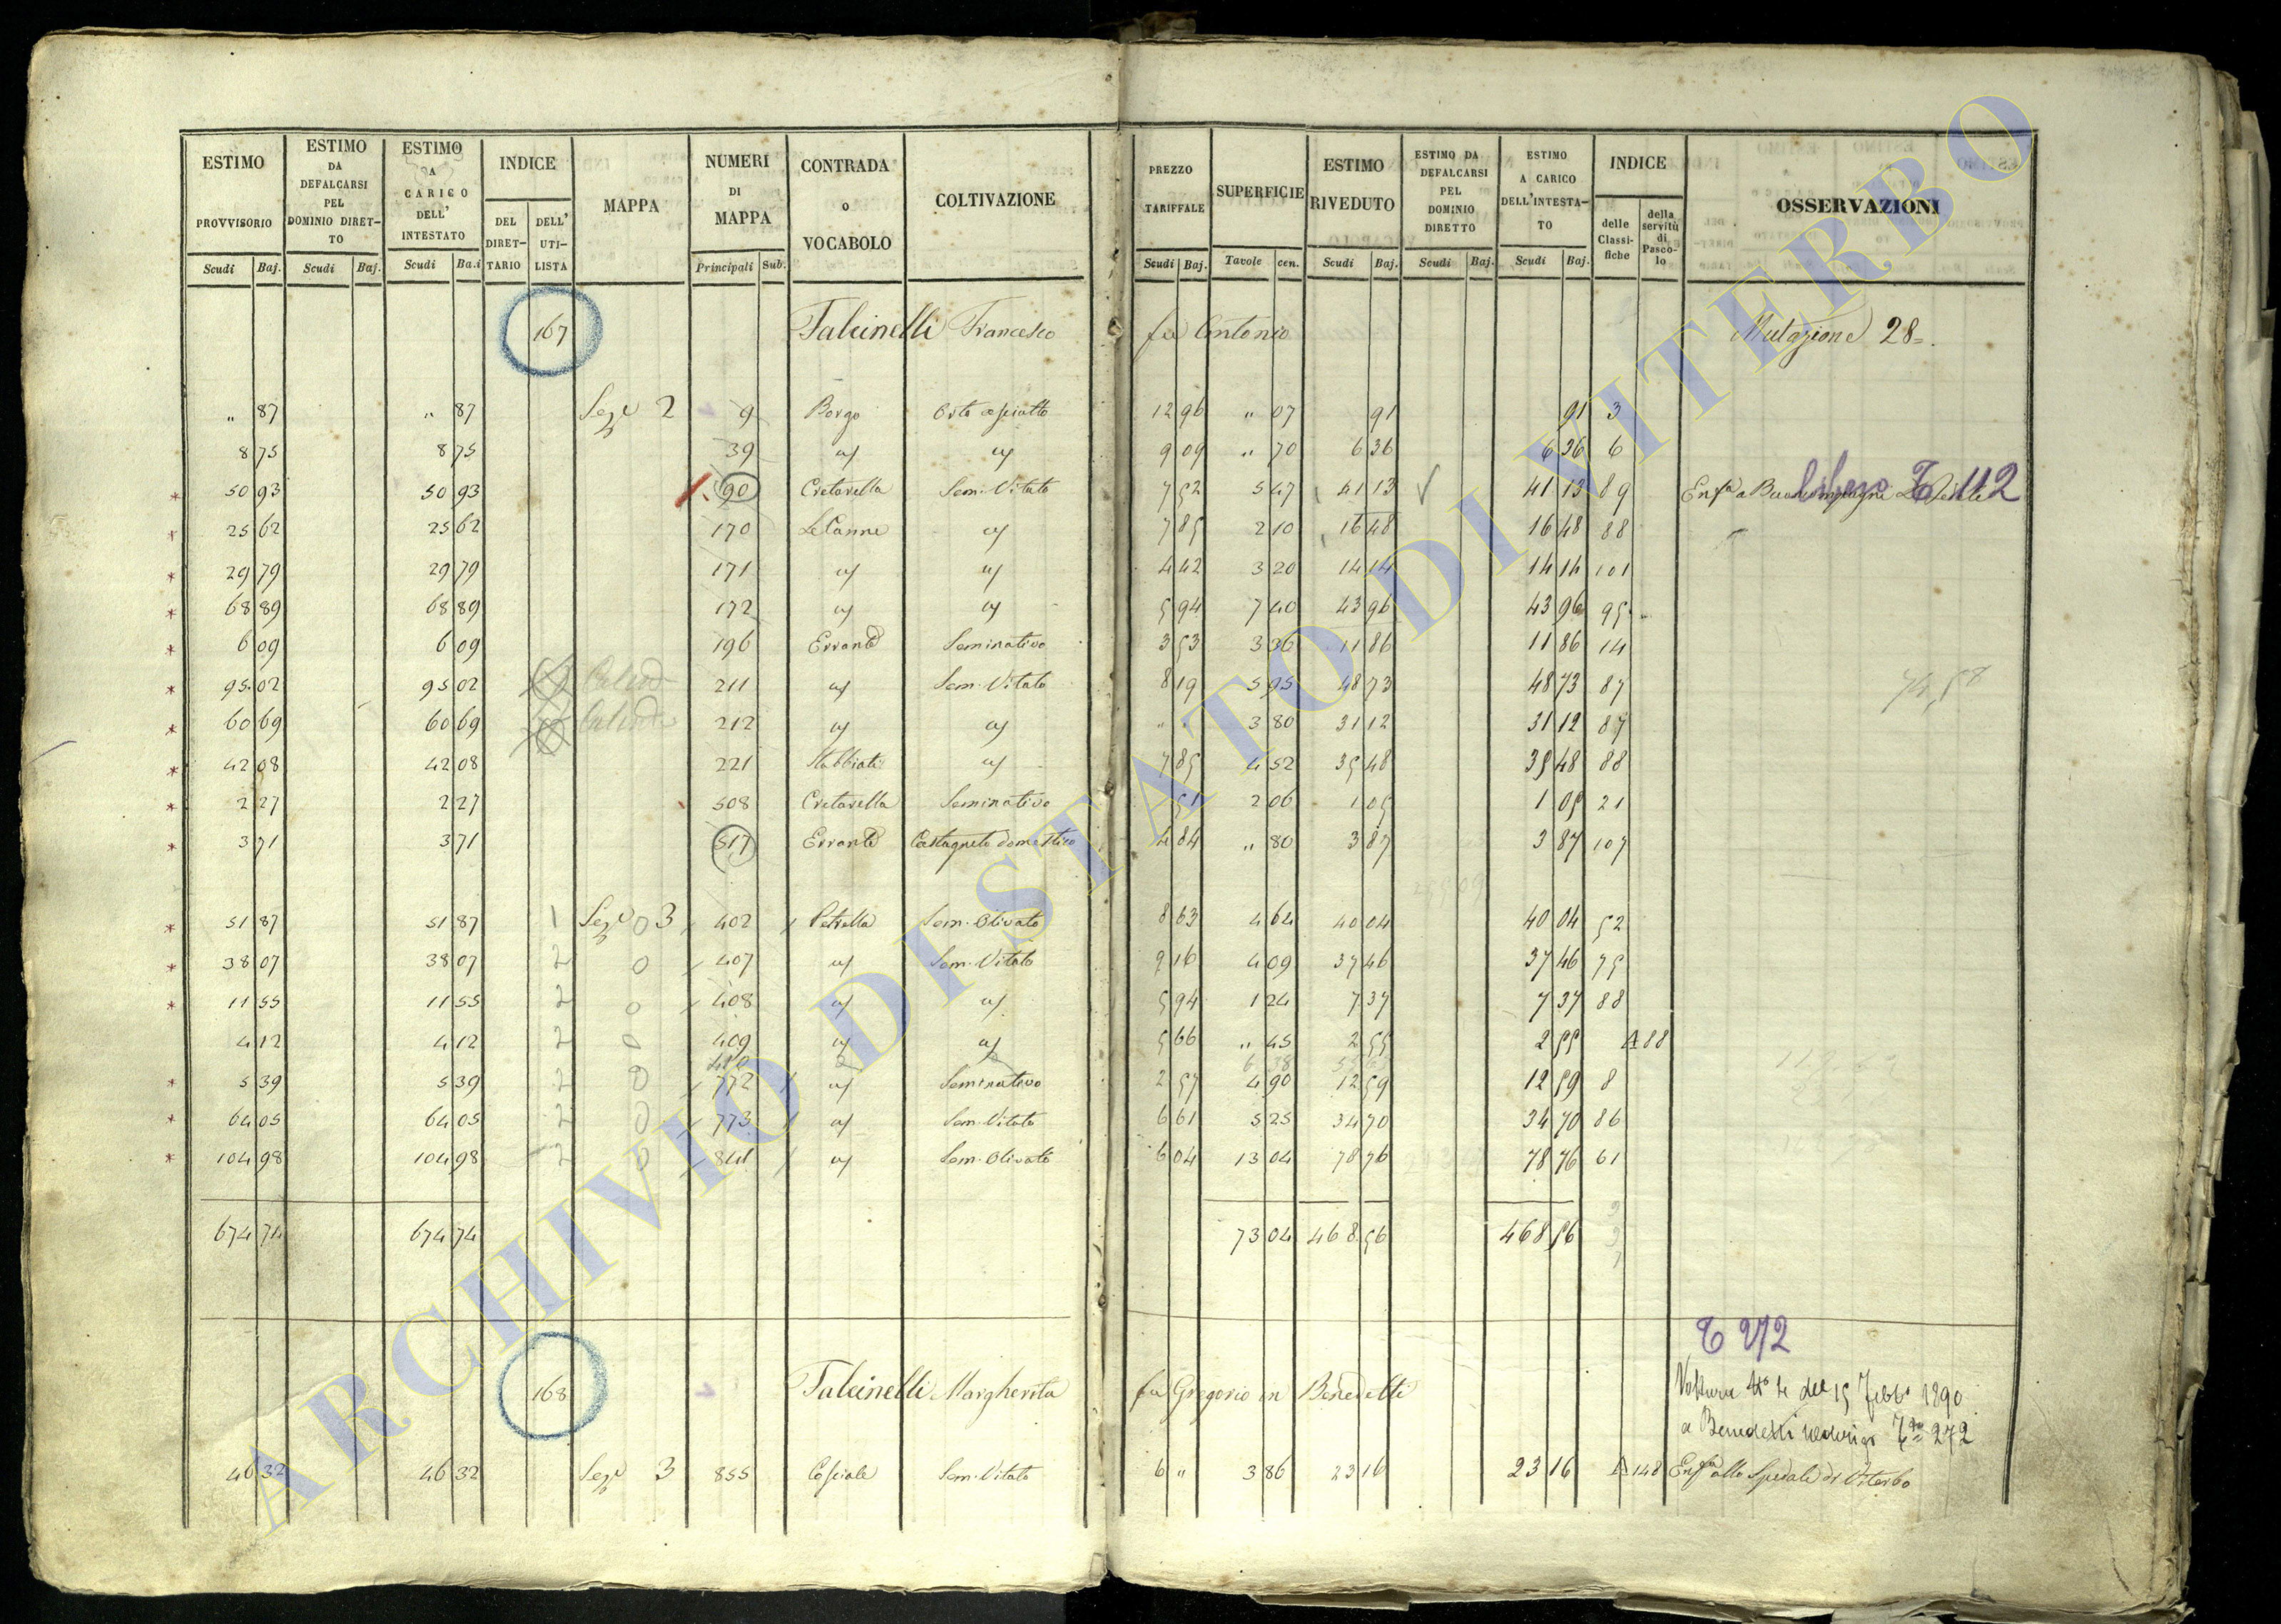 ESTIMO PROVVISORIO Scudi Baj. ESTIMO DA DEFALCARSI PEL DOMINIO DIRET-TO Scudi Baj. ESTIMO A CARICO DELL' INTESTATO Scudi Ba.i INDICE DEL DIRET-TARIO DELL' UTI-LISTA MAPPA NUMERI DI MAPPA Principali Sub. CONTRADA o VOCABOLO COLTIVAZIONE PREZZO TARIFFALE Scudi Baj. SUPERFICIE Tavole cen. ESTIMO RIVEDUTO Scudi Baj. ESTIMO DA DEFALCARSI PEL DOMINIO DIRETTO Scudi Baj. ESTIMO A CARICO DELL'INTESTA-TO Scudi Baj. INDICE delle Classi-fiche della servitù di Pasco-lo OSSERVAZIONI
167 Falcinelli Francesco fu Antonio Mutazione 28=
" 87 " 87 Seze 2 9 Borgo Orto asciutto 12 96 " 07 91 91 3
8 75 8 75 39 9 09 " 70 6 36 6 36 6
* 50 93 50 93 90 Cretarella Sem. Vitato 7 52 5 47 41 13 41 13 89 T 112
* 25 62 25 62 170 Le Canne 7 85 2 10 16 48 16 48 88
* 29 79 29 79 171 4 42 3 20 14 14 14 14 101
* 68 89 68 89 172 5 94 7 40 43 96 43 96 95
* 6 09 6 09 196 Errante Seminativo 3 53 3 36 11 86 11 86 14
* 95 02 95 02 211 Sem. Vitato 8 19 5 95 48 73 48 73 87
* 60 69 60 69 212 " 3 80 31 12 31 12 87
* 42 08 42 08 221 Stabbiate 7 85 4 52 35 48 35 48 88
* 2 27 2 27 508 Cretarella Seminativo 51 2 06 1 05 1 05 21
* 3 71 3 71 517 Errante Castagneto domestico 4 84 " 80 3 87 3 87 107
* 51 87 51 87 1 Seze 0 3 402 Petrella Sem. Olivato 8 63 4 64 40 04 40 04 52
* 38 07 38 07 2 0 407 Sem. Vitato 9 16 4 09 37 46 37 46 75
* 11 55 11 55 2 0 408 5 94 1 24 7 37 7 37 88
4 12 4 12 2 0 409 5 66 " 45 2 55 2 55 A 88
* 5 39 5 39 2 0 772 Seminativo 2 57 4 90 12 59 12 59 8
* 64 05 64 05 2 0 773 Sem. Vitato 6 61 5 25 34 70 34 70 86
* 104 98 104 98 2 0 841 Sem. Olivato 6 04 13 04 78 76 78 76 61
674 74 674 74 73 04 468 56 468 56
T 272
168 Falcinelli Margherita fu Gregorio in Benedetti
Voltura No 4 del 15 Febbo 1890
a Benedetti 272
46 32 46 32 Seze 3 855 Cosciale Sem. Vitato 6 " 3 86 23 16 23 16 A 148 Enfa allo Spedale di Viterbo
ARCHIVIO DI STATO DI VITERBO